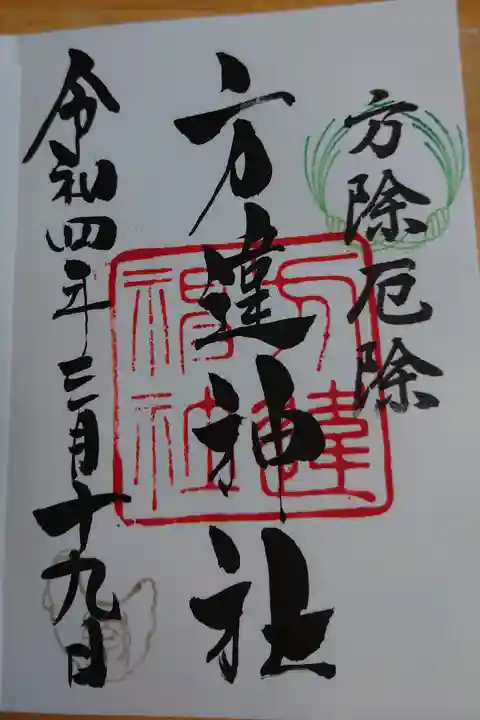 方除厄除
方違神社
方違
神社
令和四年三月十九日